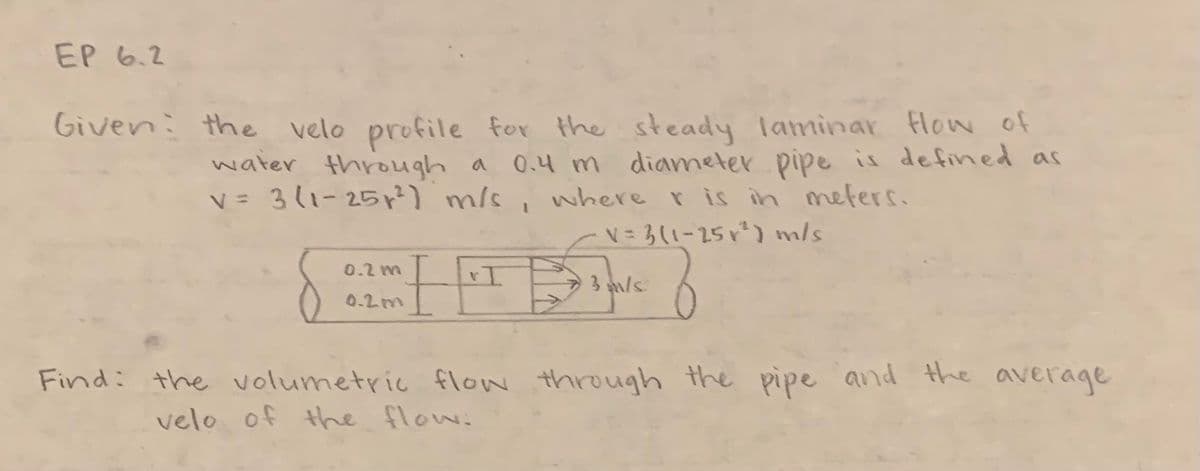 EP 6.2
Given: the velo profile for the steady laminar flow of
water through a 0.4 m diameter pipe is defined as
v = 3(1-25r²) m/s, where r is in meters.
v = 3(1-25r²) m/s
0.2m
r
3 m/s
0.2m
Find: the volumetric flow through the pipe and the average
velo of the flow.